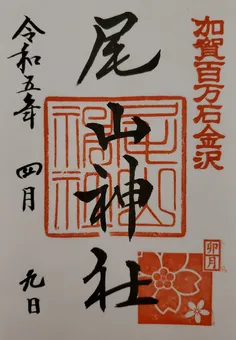 加賀百万石金沢
尾山神社
卯月
令和五年 四月 九日
尾山神社